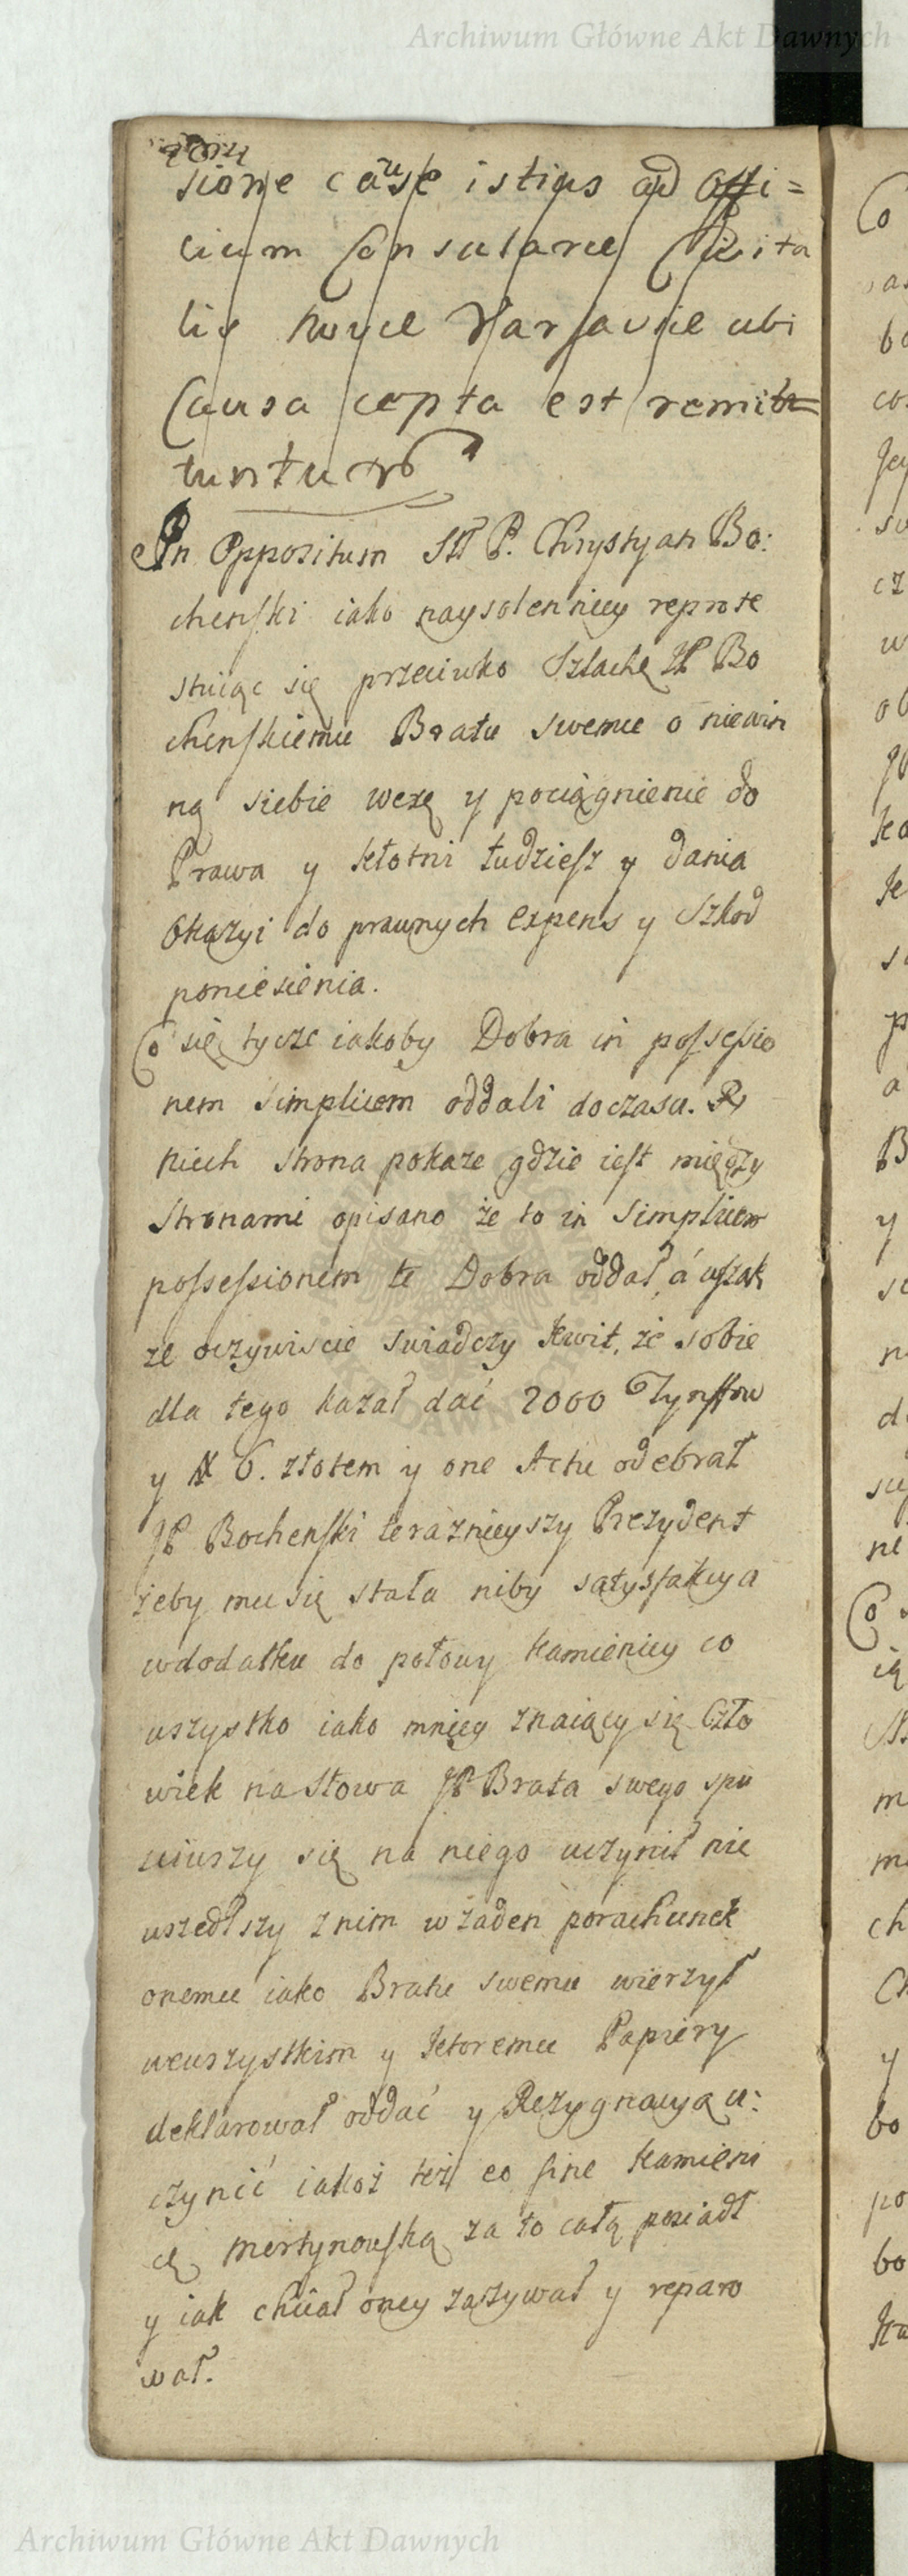 Archiwum Główne Akt Dawnych
sione cause istius ad Offi=
cium Consulare Civita
tis Novæ Varsaviæ ubi
Causa cæpta est remit=
tuntur
In Oppositum P. Chrystyan Bo:
chenski iako naysolenniey reprote
stuiąc się przeciwko Szlachę JP Bo
chenskiemu Bratu swemu o niewin
ną siebie wexę y pociągnienie do
Prawa y kłotni tudziesz y dania
Okazyi do prawnych expens y Szkod
poniesienia.
Co się tycze iakoby Dobra in possessio
nem simplicem oddali doczasu. R
Niech strona pokaże gdzie iest między
stronami opisano że to in simplicem
possessionem te Dobra oddał, á wszak
że oczywiscie swiadczy kwit, że sobie
dla tego kazał dać 2000 Tynffow
y 6. złotem y one Actu odebrał
JP Bochenski teraznieyszy Prezydent
żeby mu się stała niby satysfakcya
wdodatku do połowy kamienicy co
wszystko iako mniey znaiący się Czło
wiek na Słowa JP Brata swego spu
sciwszy się na niego uczynił nie
wszedłszy znim w żaden porachunek
onemu iako Bratu swemu wierzył
wewszystkim y ktoremu Papiery
deklarował oddać y Rezygnacyą u:
czynić iakoż też eo fine kamieni
cę Mertynowską za to całą posiadł
y iak chciał oney zażywał y reparo
wał.
Archiwum Główne Akt Dawnych